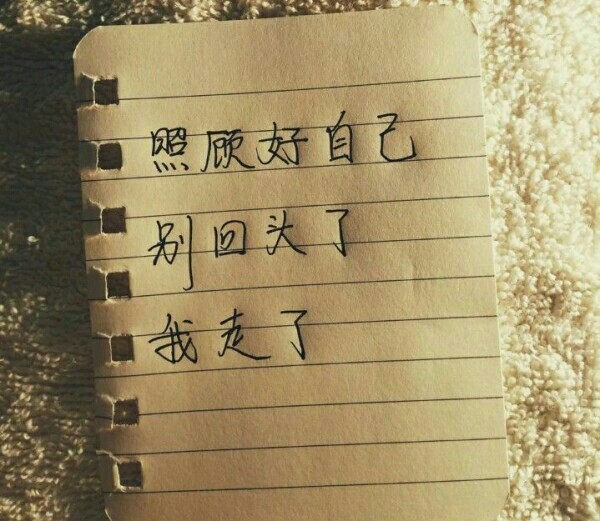 照顾好自己
别回头了
我走了